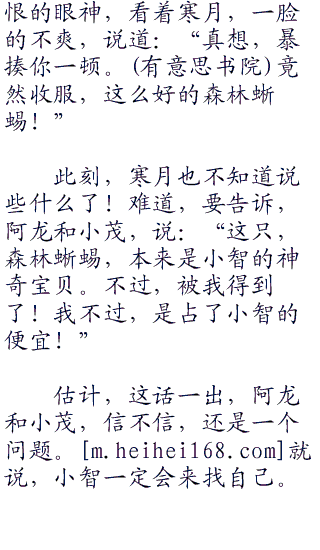 恨的眼神，看着寒月，一脸
的不爽，说道：“真想，暴
揍你一顿。(有意思书院)竟
然收服，这么好的森林蜥
蜴！”
此刻，寒月也不知道说
些什么了！难道，要告诉，
阿龙和小茂，说：“这只，
森林蜥蜴，本来是小智的神
奇宝贝。不过，被我得到
了！我不过，是占了小智的
便宜！”
估计，这话一出，阿龙
和小茂，信不信，还是一个
问题。[m.heihei168.com]就
说，小智一定会来找自己。